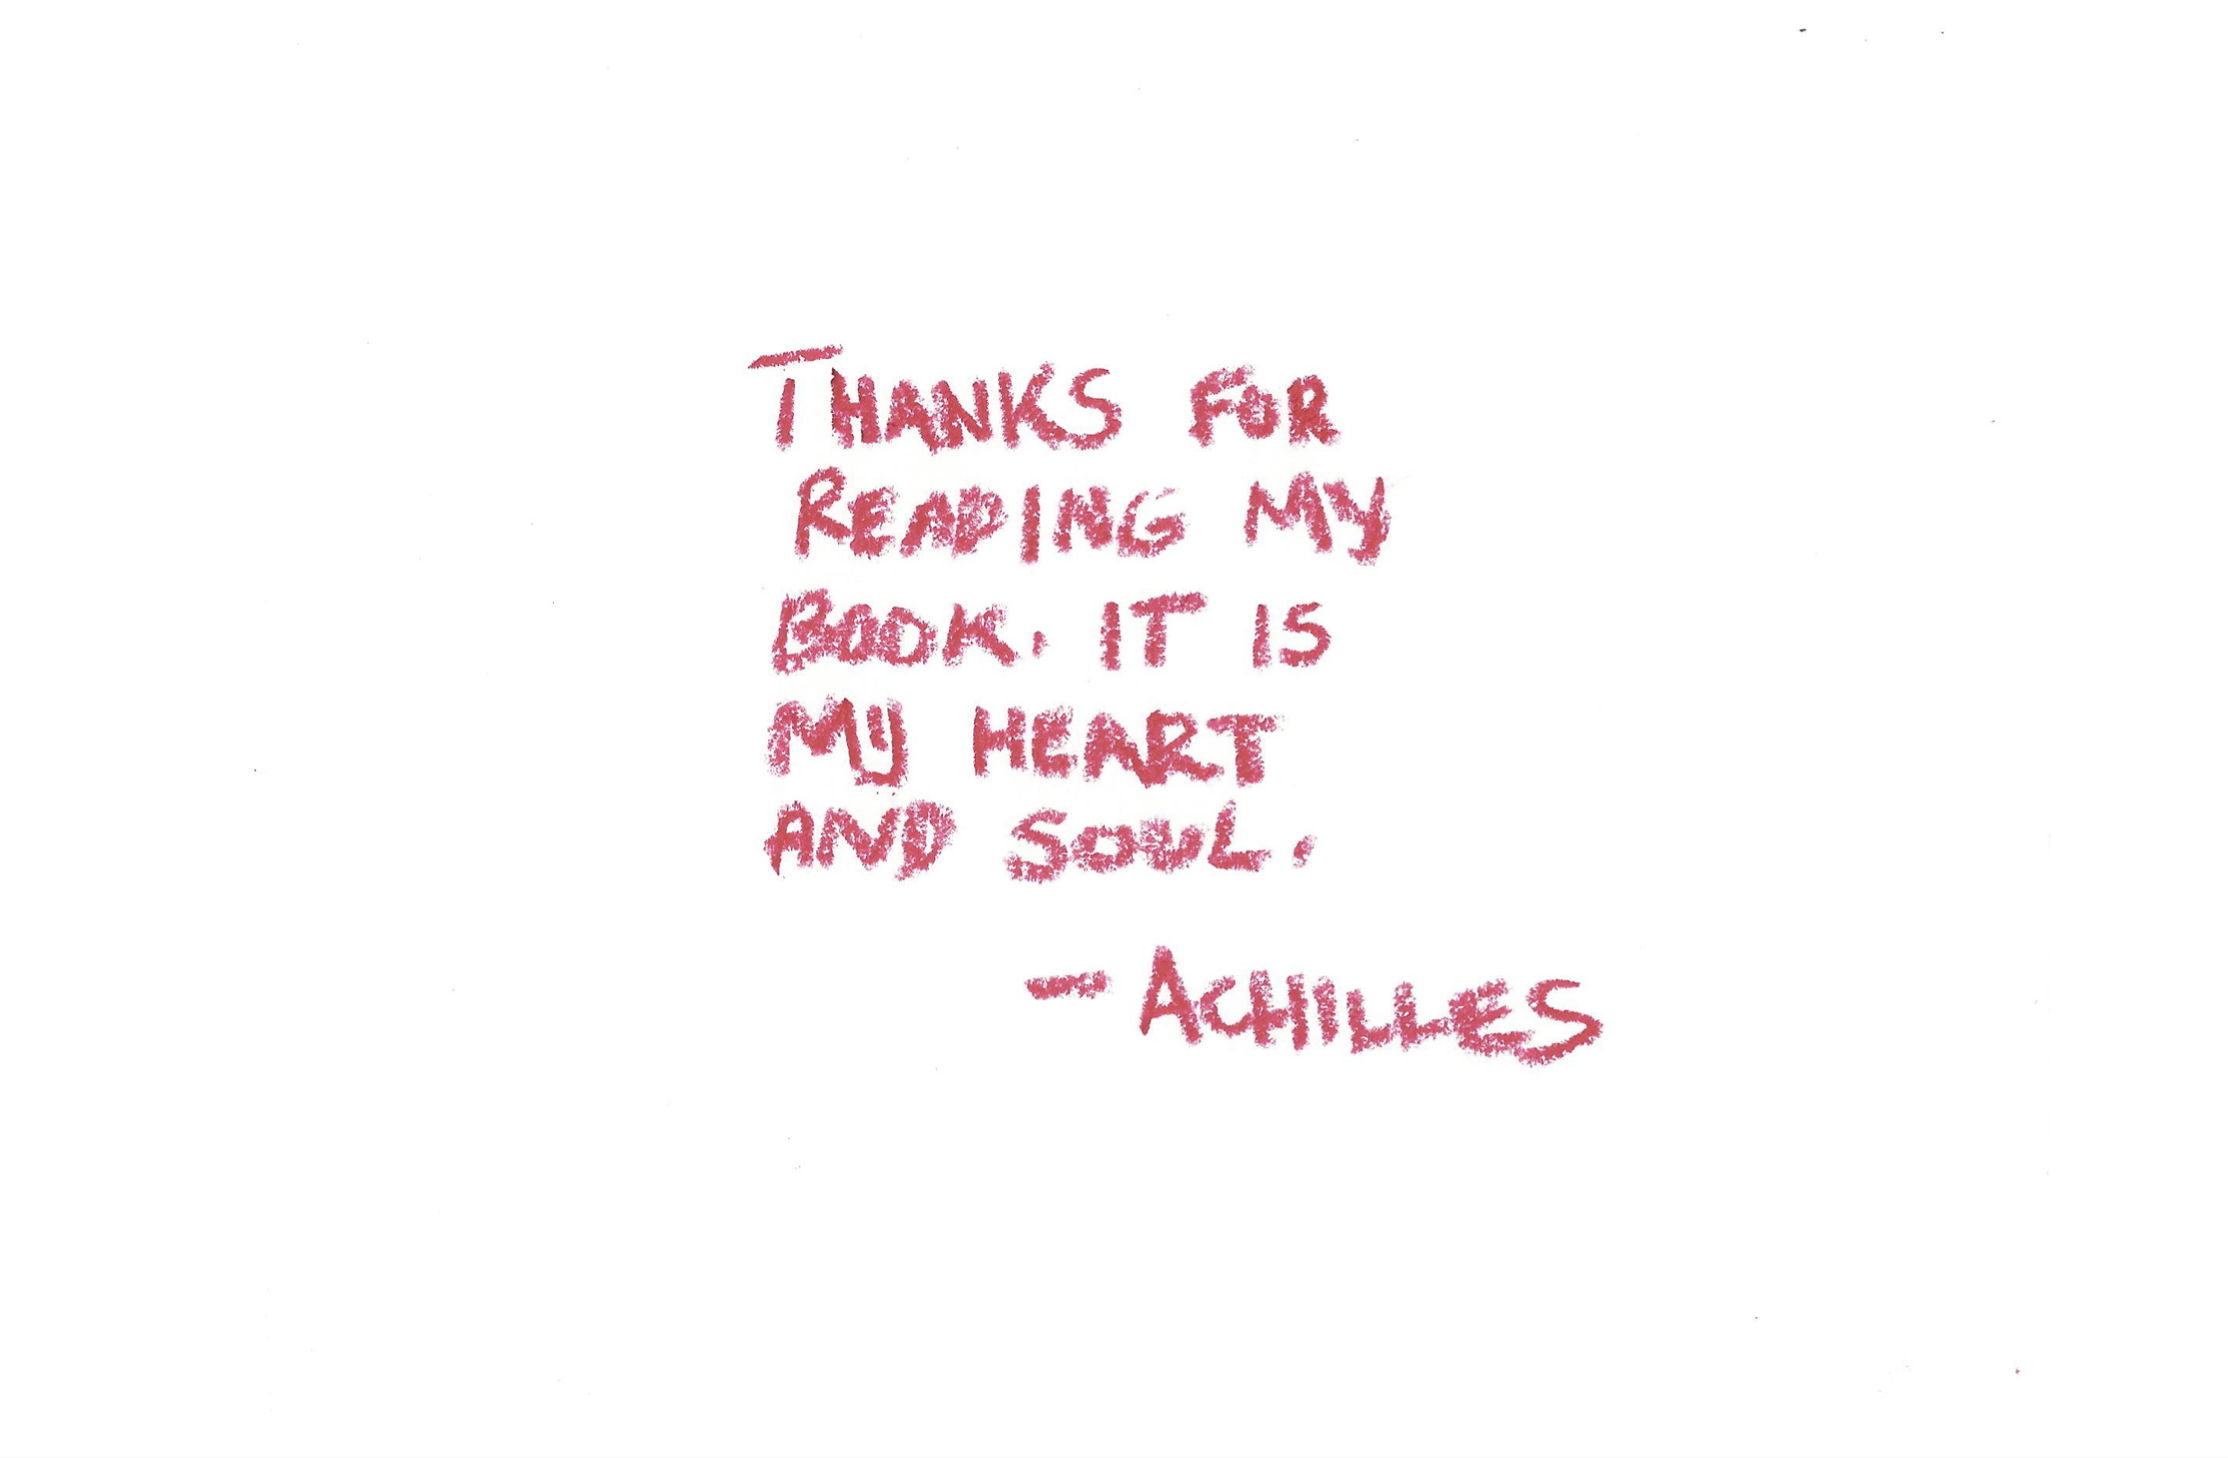 THANKS FOR
READING MY
BOOK. IT IS
MY HEART
AND SOUL.
- ACHILLES